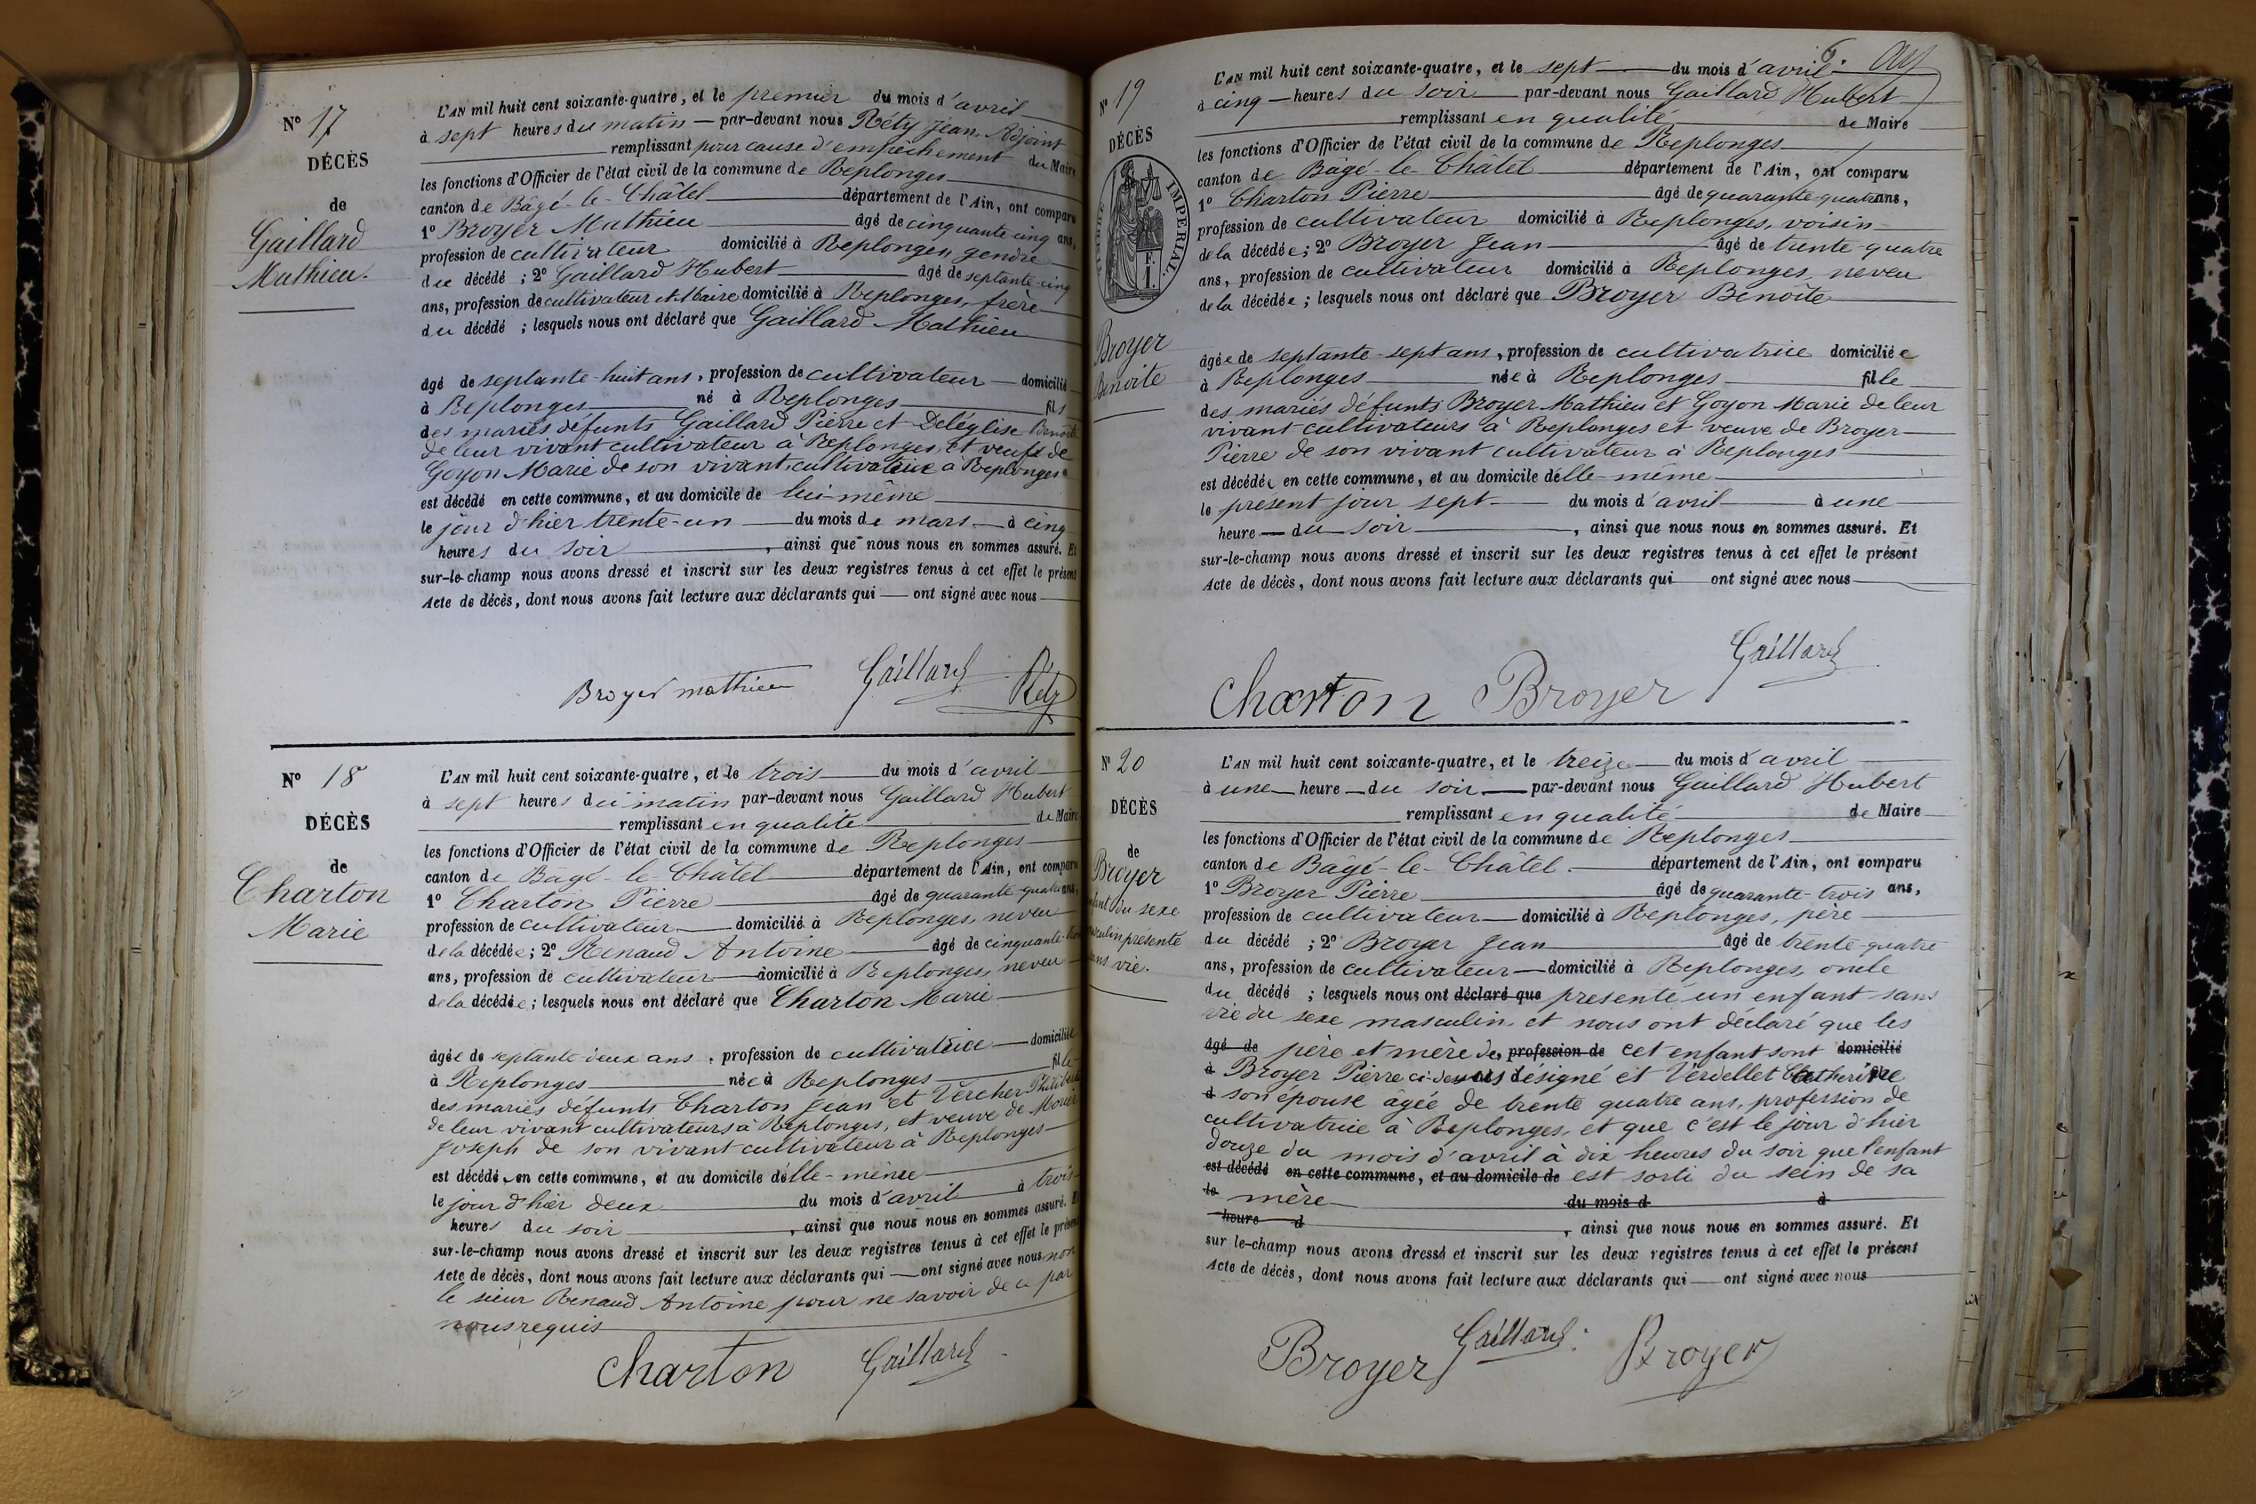 N° 17
DÉCÈS
de
Gaillard
Mathieu.
L'AN mil huit cent soixante-quatre, et le premier du mois d'avril
à sept heures du matin par-devant nous Réty Jean Adjoint
remplissant pour cause d'empêchement du Maire
les fonctions d'Officier de l'état civil de la commune de Replonges
canton de Bâgé-le-Châtel département de l'Ain, ont comparu
1° Broyer Mathieu âgé de cinquante cinq ans,
profession de cultivateur domicilié à Replonges, gendre
du décédé ; 2° Gaillard Hubert âgé de septante-cinq
ans, profession de cultivateur et Maire domicilié à Replonges, frère
du décédé ; lesquels nous ont déclaré que Gaillard Mathieu
âgé de septante-huit ans, profession de cultivateur domicilié
à Replonges né à Replonges fils
des mariés défunts Gaillard Pierre et Deléglise Benoîte
de leur vivant cultivateur à Replonges, et veuf de
Goyon Marie de son vivant cultivatrice à Replonges
est décédé en cette commune, et au domicile de lui-même
le jour d'hier trente-un du mois de mars à cinq
heures du soir, ainsi que nous nous en sommes assuré. Et
sur-le-champ nous avons dressé et inscrit sur les deux registres tenus à cet effet le présent
Acte de décès, dont nous avons fait lecture aux déclarants qui ont signé avec nous
Broyer mathieu Gaillard Réty
N° 18
DÉCÈS
de
Charton
Marie
L'AN mil huit cent soixante-quatre, et le trois du mois d'avril
à sept heures du matin par-devant nous Gaillard Hubert
remplissant en qualité de Maire
les fonctions d'Officier de l'état civil de la commune de Replonges
canton de Bâgé-le-Châtel département de l'Ain, ont comparu
1° Charton Pierre âgé de quarante-quatre ans,
profession de cultivateur domicilié à Replonges, neveu
de la décédée ; 2° Renaud Antoine âgé de cinquante-
ans, profession de cultivateur domicilié à Replonges, neveu
de la décédée ; lesquels nous ont déclaré que Charton Marie
âgée de septante deux ans, profession de cultivatrice domiciliée
à Replonges née à Replonges fille
des mariés défunts Charton Jean et Vercher Philiberte
de leur vivant cultivateurs à Replonges, et veuve de
Joseph de son vivant cultivateur à Replonges
est décédée en cette commune, et au domicile d'elle-même
le jour d'hier deux du mois d'avril à trois
heures du soir, ainsi que nous nous en sommes assuré. Et
sur-le-champ nous avons dressé et inscrit sur les deux registres tenus à cet effet le présent
Acte de décès, dont nous avons fait lecture aux déclarants qui ont signé avec nous non
le sieur Renaud Antoine pour ne savoir de ce par
nous requis
Charton Gaillard
6
N° 19
DÉCÈS
TIMBRE IMPÉRIAL
Broyer
Benoite
L'AN mil huit cent soixante-quatre, et le sept du mois d'avril
à cinq heures du soir par-devant nous Gaillard Hubert
remplissant en qualité de Maire
les fonctions d'Officier de l'état civil de la commune de Replonges
canton de Bâgé-le-Châtel département de l'Ain, ont comparu
1° Charton Pierre âgé de quarante quatre ans,
profession de cultivateur domicilié à Replonges, voisin
de la décédée ; 2° Broyer Jean âgé de trente-quatre
ans, profession de cultivateur domicilié à Replonges, neveu
de la décédée ; lesquels nous ont déclaré que Broyer Benoîte
âgée de septante-sept ans, profession de cultivatrice domiciliée
à Replonges née à Replonges fille
des mariés défunts Broyer Mathieu et Goyon Marie de leur
vivant cultivateurs à Replonges et veuve de Broyer
Pierre de son vivant cultivateur à Replonges
est décédée en cette commune, et au domicile d'elle-même
le présent jour sept du mois d'avril à une
heure du soir, ainsi que nous nous en sommes assuré. Et
sur-le-champ nous avons dressé et inscrit sur les deux registres tenus à cet effet le présent
Acte de décès, dont nous avons fait lecture aux déclarants qui ont signé avec nous
Gaillard
Charton Broyer
N° 20
DÉCÈS
de
Broyer
enfant du sexe
masculin présenté
sans vie.
L'AN mil huit cent soixante-quatre, et le treize du mois d'avril
à une heure du soir par-devant nous Gaillard Hubert
remplissant en qualité de Maire
les fonctions d'Officier de l'état civil de la commune de Replonges
canton de Bâgé-le-Châtel département de l'Ain, ont comparu
1° Broyer Pierre âgé de quarante-trois ans,
profession de cultivateur domicilié à Replonges, père
du décédé ; 2° Broyer Jean âgé de trente-quatre
ans, profession de cultivateur domicilié à Replonges, oncle
du décédé ; lesquels nous ont déclaré que présenté un enfant sans
vie du sexe masculin, et nous ont déclaré que les
âgé de père et mère de, profession de cet enfant sont domicilié
à Broyer Pierre ci-dessus désigné et Verdellet Catherine
d son épouse âgée de trente quatre ans, profession de
cultivatrice à Replonges, et que c'est le jour d'hier
douze du mois d'avril à dix heures du soir que l'enfant
est décédé en cette commune, et au domicile de est sorti du sein de sa
le mère du mois d à
heure d, ainsi que nous nous en sommes assuré. Et
sur le-champ nous avons dressé et inscrit sur les deux registres tenus à cet effet le présent
Acte de décès, dont nous avons fait lecture aux déclarants qui ont signé avec nous
Broyer Gaillard Broyer